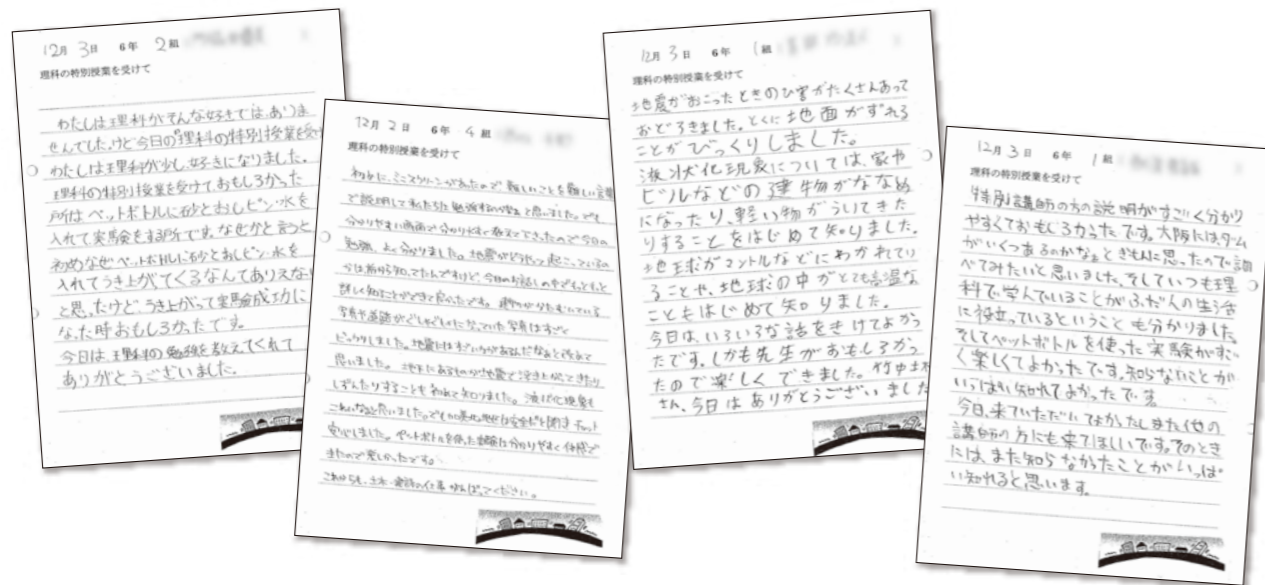 12月 3日 6年 2組
理科の特別授業を受けて
わたしは理科がそんな好きではありま
せんでした。けど今日の理科の特別授業を受け
わたしは理科が少し好きになりました。
理科の特別授業を受けておもしろかった
所はペットボトルに砂とおしピン・水を
入れて実験をする所です。なぜかと言うと
初めなぜペットボトルに砂とおしピン、水を
入れてうき上がてくるなんてありえない
と思ったけど、うき上がって実験成功に
なった時おもしろかったです。
今日は理科の勉強を教えてくれて
ありがとうございました。
12月 2日 6年 4組
理科の特別授業を受けて
初めに、ミニスクリーンがあたので難しいことを難しい言葉
で説明して私たちは勉強するのかなと思いました。でも
分かりやすい画面で分かりやすく教えて下さったので今日の
勉強、よく分かりました。地震がどうやって起こっているの
かは前から知ってたんですけど、今日のお話しの中でもっともっと
詳しく知ることができて良かったです。建物がかたむいている
写真や道路がぐしゃぐしゃになっていた写真はすごく
ビックリしました。地震にはすごい力があるんだなぁと改めて
思いました。地下にあるものが地震で浮き上がってきたり
しずんだりすることも初めて知りました。液状化現象も
こわいなぁと思いました。でも
安心しました。ペットボトルを使った実験は分かりやすく体感で
きたので楽しかったです。
これからも、土木・建築の仕事がんばってください。
12月 3日 6年 1組
理科の特別授業を受けて
地震がおこったときのひ害がたくさんあって
おどろきました。とくに地面がずれる
ことがびっくりしました。
液状化現象については、家や
ビルなどの建物がななめ
になったり、軽い物がういてきた
りすることをはじめて知りました。
地球がマントルなどにわかれてい
ることや、地球の中がとても高温な
こともはじめて知りました。
今日は、いろいろな話をきけてよかっ
たです。しかも先生がおもしろかっ
たので楽しくできました。竹中土木
さん、今日はありがとうございました
12月 3日 6年 1組
理科の特別授業を受けて
特別講師の方の説明がすごく分かり
やすくておもしろかったです。大阪にはダム
がいくつあるのかなぁとぎもんに思ったので調
べてみたいと思いました。そしていつも理
科で学んでいることがふだんの生活
に役立っているということも分かりました。
そしてペットボトルを使った実験がすご
く楽しくてよかったです。知らないことが
いっぱい知れてよかったです。
今日、来ていただいてよかったしまた他の
講師の方にも来てほしいです。そのとき
には、また知らなかったことがいっぱ
い知れると思います。